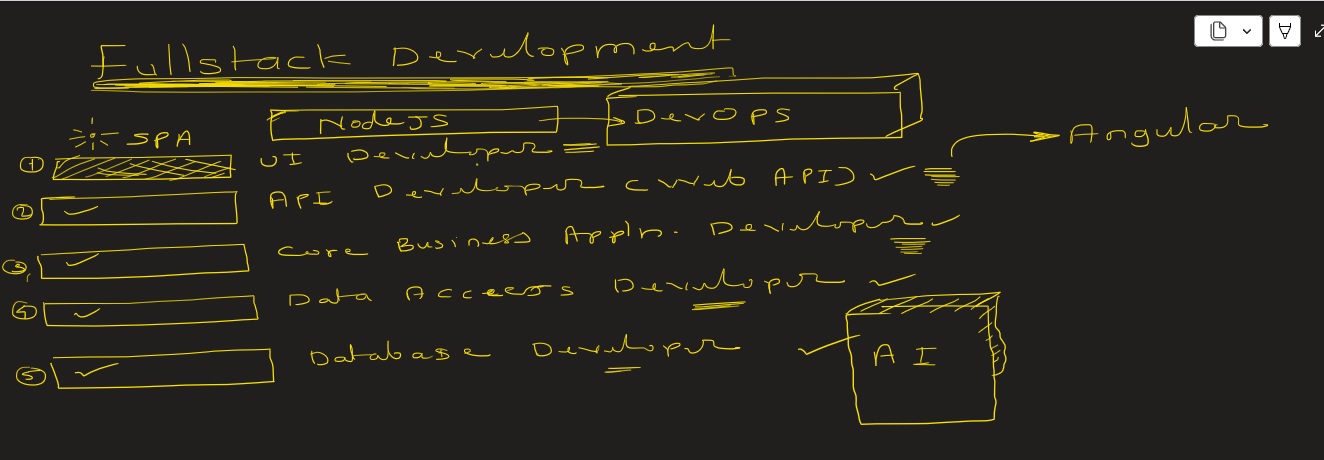 Fullstack Development
NodeJS → DevOPS
SPA
① UI Developer
→ Angular
② API Developer (Web API) ✓
③ Core Business Appln. Developer ✓
④ Data Access Developer ✓
⑤ Database Developer ✓
AI